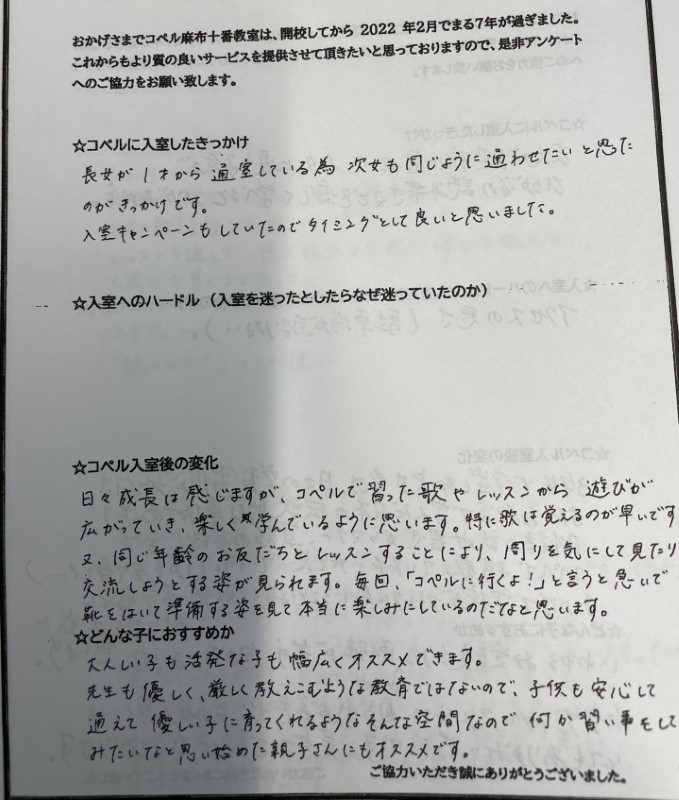 おかげさまでコペル麻布十番教室は、開校してから 2022 年2月でまる7年が過ぎました。
これからもより質の良いサービスを提供させて頂きたいと思っておりますので、是非アンケート
へのご協力をお願い致します。
☆コペルに入室したきっかけ
長女が1才から通室している為 次女も同じように通わせたいと思った
のがきっかけです。
入室キャンペーンもしていたのでタイミングとして良いと思いました。
☆入室へのハードル（入室を迷ったとしたらなぜ迷っていたのか）
☆コペル入室後の変化
日々成長は感じますが、コペルで習った歌やレッスンから 遊びが
広がっていき、楽しく学んでいるように思います。特に歌は覚えるのが早いです
又、同じ年齢のお友だちとレッスンすることにより、周りを気にして見たり
交流しようとする姿が見られます。毎回、「コペルに行くよ!」と言うと急いで
靴をはいて準備する姿を見て本当に楽しみにしているのだなと思います。
☆どんな子におすすめか
大人しい子も活発な子も幅広くオススメできます。
先生も優しく、厳しく教えこむような教育ではないので、子供も安心して
通えて 優しい子に育ってくれるようなそんな空間なので 何か習い事をして
みたいなと思い始めた親子さんにもオススメです。
ご協力いただき誠にありがとうございました。